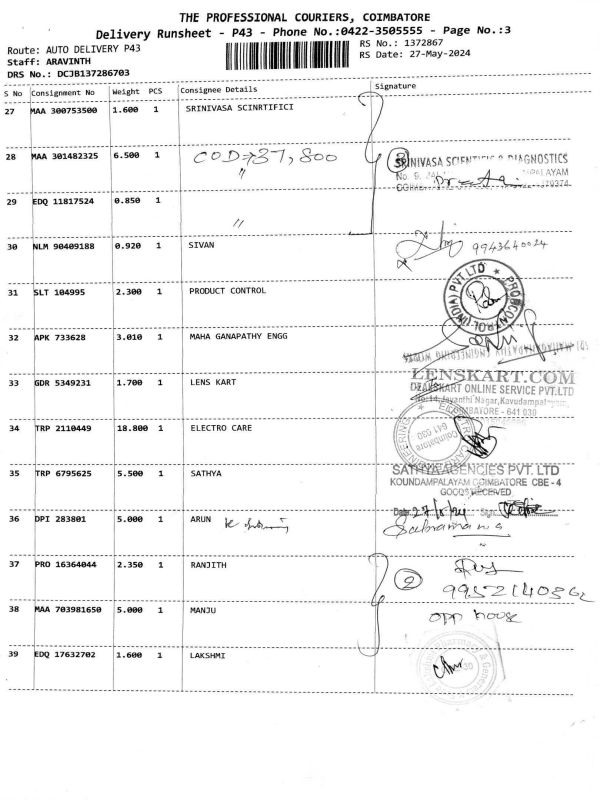 THE PROFESSIONAL COURIERS, COIMBATORE
Delivery Runsheet - P43 - Phone No.:0422-3505555 - Page No.:3
Route: AUTO DELIVERY P43
RS No.: 1372867
Staff: ARAVINTH
RS Date: 27-May-2024
DRS No.: DCJB137286703
S No Consignment No Weight PCS Consignee Details Signature
27 MAA 300753500 1.600 1 SRINIVASA SCINRTIFICI
28 MAA 301482325 6.500 1 COD→37,800
"
SRINIVASA SCIENTIFIC & DIAGNOSTICS
29 EDQ 11817524 0.850 1
"
30 NLM 90409188 0.920 1 SIVAN 9943640024
31 SLT 104995 2.300 1 PRODUCT CONTROL
PROBCONTROL (INDIA) PVT LTD
32 APK 733628 3.010 1 MAHA GANAPATHY ENGG
MAHAGANAPATHY ENGINEERING WORKS
33 GDR 5349231 1.700 1 LENS KART
LENSKART.COM
DEALSKART ONLINE SERVICE PVT.LTD
No:14, Jeyanthi Nagar, Kavudampalayam,
COIMBATORE - 641 030
34 TRP 2110449 18.800 1 ELECTRO CARE
Coimbatore 641 030
35 TRP 6795625 5.500 1 SATHYA
SATHYA AGENCIES PVT. LTD
KOUNDAMPALAYAM COIMBATORE CBE - 4
GOODS RECEIVED
Date: 27/5/24 Sign:
36 DPI 283801 5.000 1 ARUN
37 PRO 16364044 2.350 1 RANJITH
2
9952140362
38 MAA 703981650 5.000 1 MANJU
opp house
39 EDQ 17632702 1.600 1 LAKSHMI